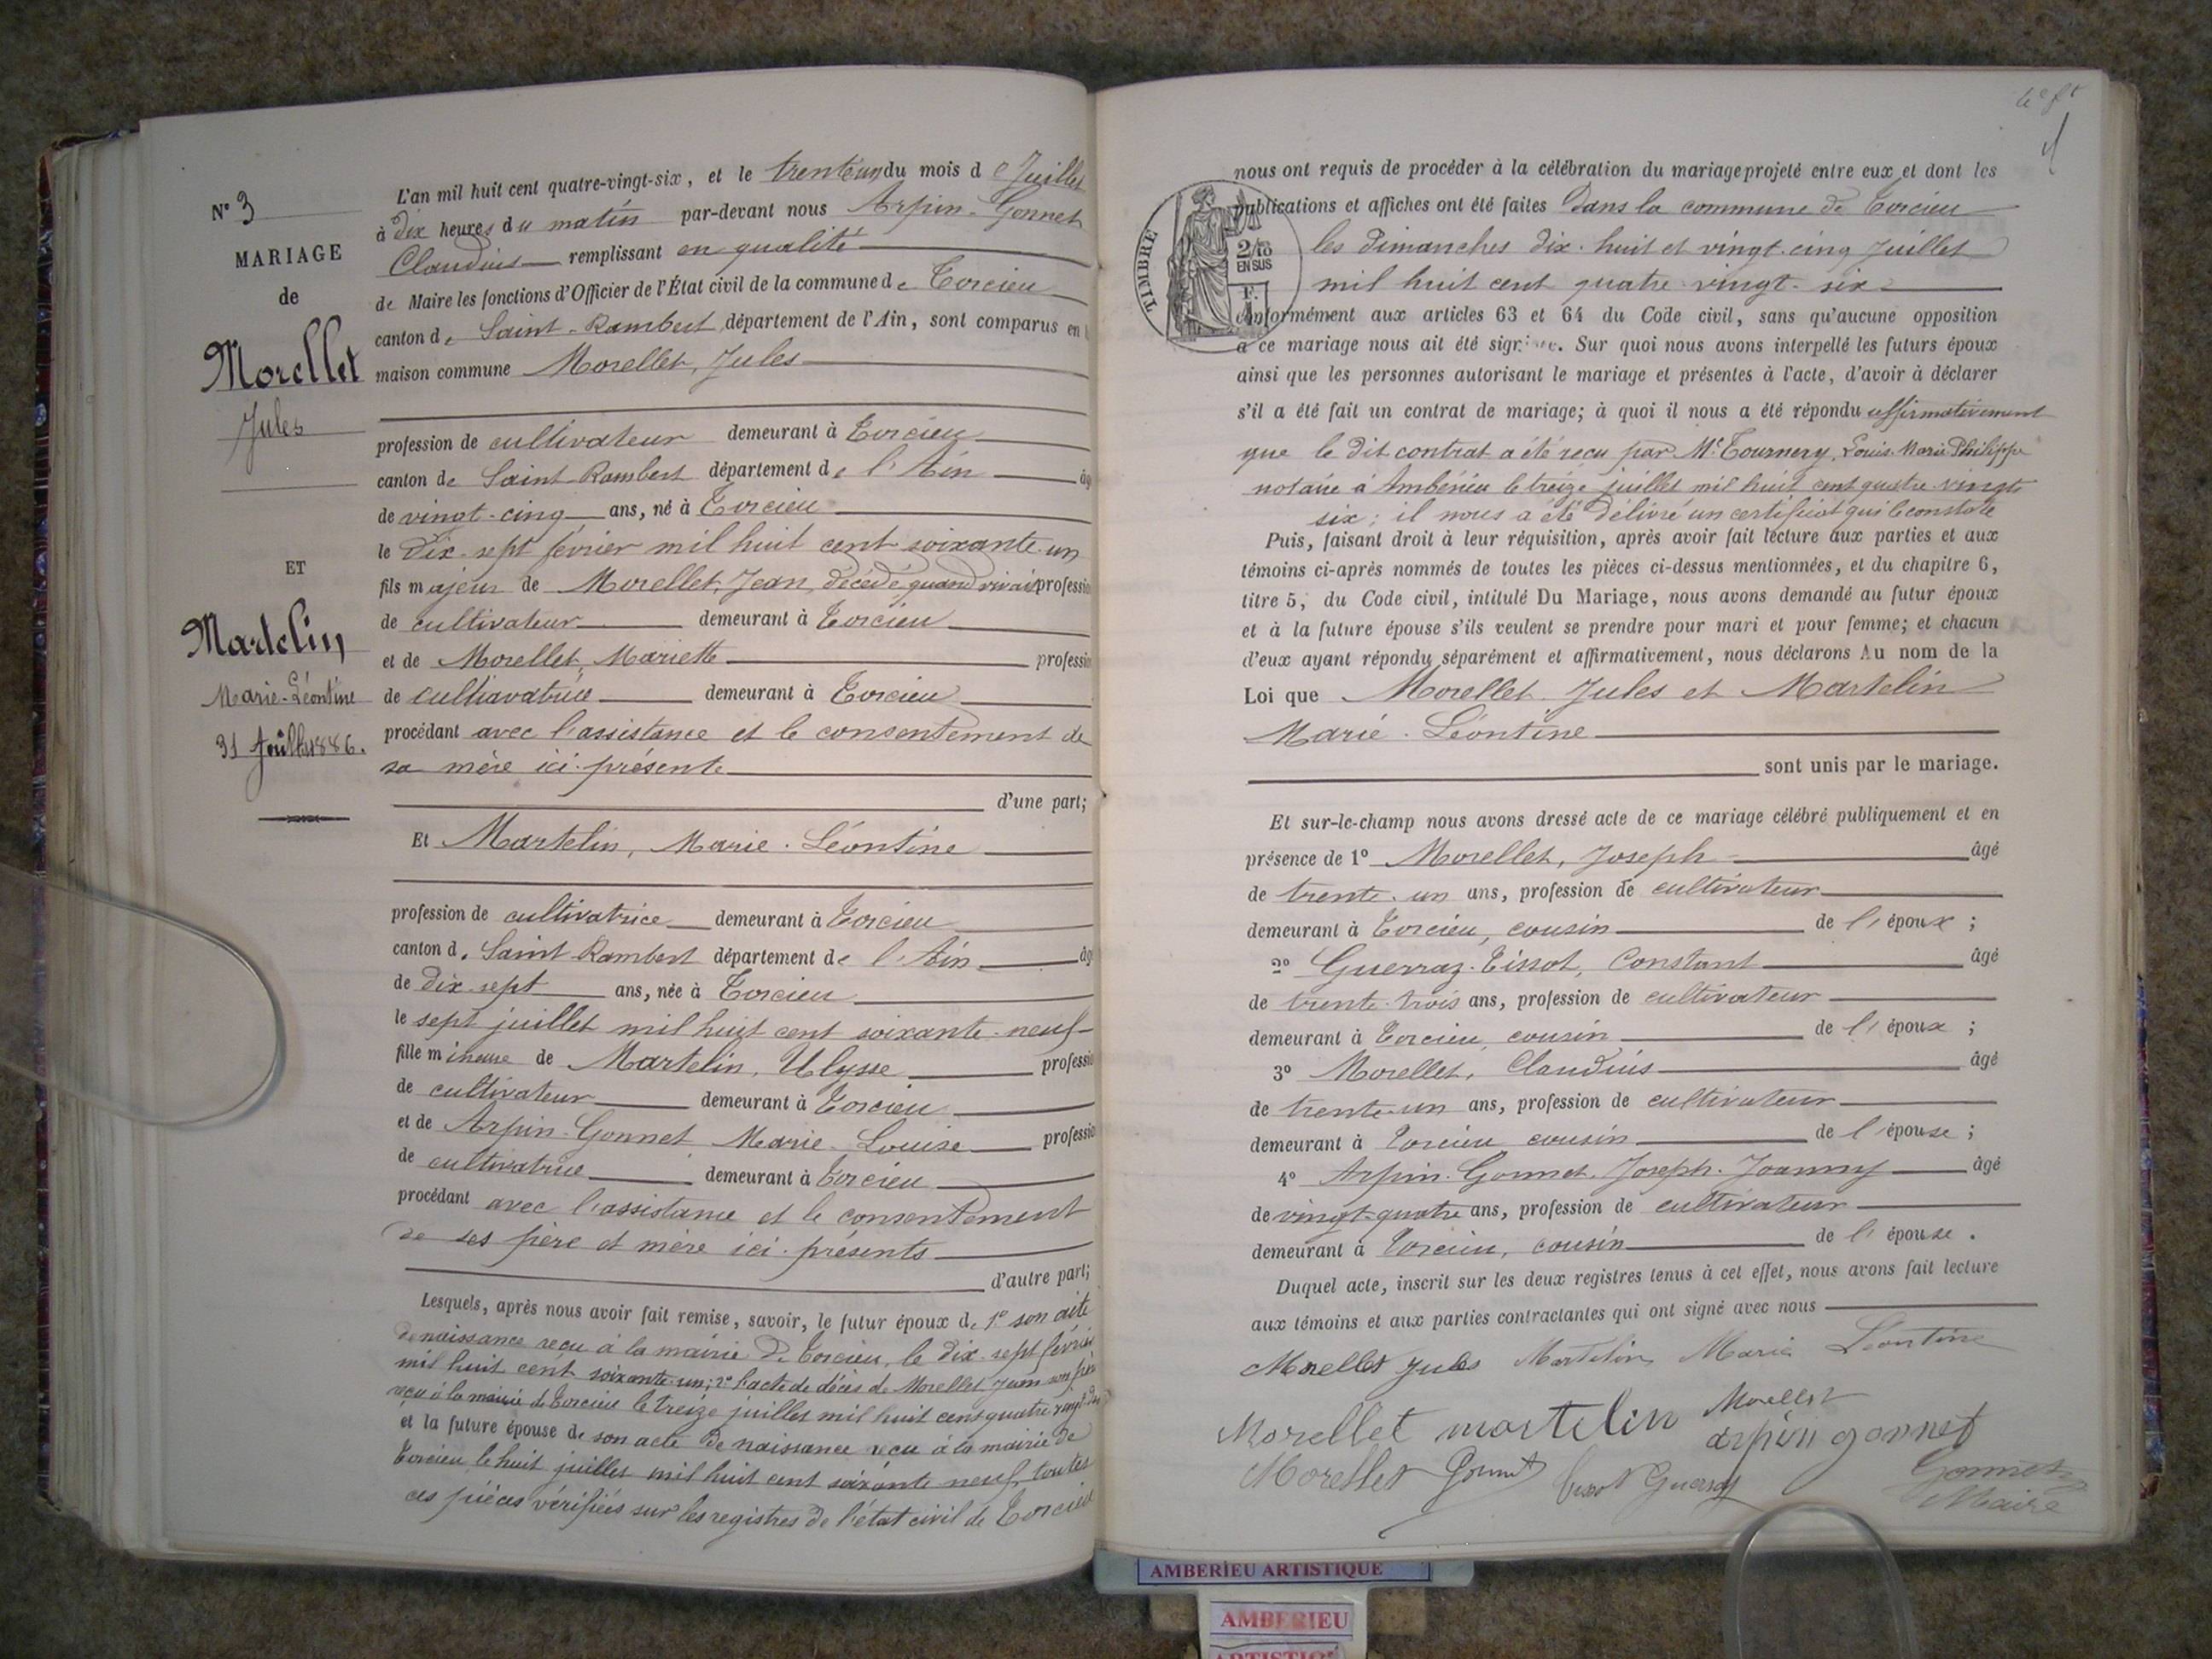 N° 3
MARIAGE
de
Morellet
Jules
ET
Martelin
Marie-Léontine
31 Juillet 1886.
L'an mil huit cent quatre-vingt-six, et le trente un du mois de Juillet
à dix heures du matin par-devant nous Arpin-Gonnet
Claudius remplissant en qualité
de Maire les fonctions d'Officier de l'État civil de la commune de Torcieu
canton de Saint-Rambert département de l'Ain, sont comparus en
maison commune Morellet, Jules
profession de cultivateur demeurant à Torcieu
canton de Saint-Rambert département de l'Ain âg
de vingt-cinq ans, né à Torcieu
le dix-sept février mil huit cent soixante-un
fils majeur de Morellet, Jean, décédé quand vivait profession
de cultivateur demeurant à Torcieu
et de Morellet, Mariette profession
de cultiavatrice demeurant à Torcieu
procédant avec l'assistance et le consentement de
sa mère ici-présente
d'une part;
Et Martelin, Marie-Léontine
profession de cultivatrice demeurant à Torcieu
canton de Saint-Rambert département de l'Ain âg
de dix-sept ans, née à Torcieu
le sept juillet mil huit cent soixante-neuf
fille mineure de Martelin, Ulysse profession
de cultivateur demeurant à Torcieu
et de Arpin-Gonnet Marie-Louise profession
de cultivatrice demeurant à Torcieu
procédant avec l'assistance et le consentement
de ses père et mère ici-présents
d'autre part;
Lesquels, après nous avoir fait remise, savoir, le futur époux de 1° son acte
de naissance reçu à la mairie de Torcieu, le dix-sept février
mil huit cent soixante-un; 2° l'acte de décès de Morellet Jean son père
reçu à la mairie de Torcieu le treize juillet mil huit cent quatre vingt
et la future épouse de son acte de naissance reçu à la mairie de
Torcieu le huit juillet mil huit cent soixante neuf, toutes
ces pièces vérifiées sur les registres de l'état civil de Torcieu
nous ont requis de procéder à la célébration du mariage projeté entre eux et dont les
publications et affiches ont été faites dans la commune de Torcieu
les dimanches dix-huit et vingt-cinq juillet
mil huit cent quatre-vingt-six
TIMBRE
2/10
EN SUS
F.
Conformément aux articles 63 et 64 du Code civil, sans qu'aucune opposition
à ce mariage nous ait été signifiée. Sur quoi nous avons interpellé les futurs époux
ainsi que les personnes autorisant le mariage et présentes à l'acte, d'avoir à déclarer
s'il a été fait un contrat de mariage; à quoi il nous a été répondu affirmativement
que le dit contrat a été reçu par Me Tournery, Louis-Marie-Philippe
notaire à Ambérieu le treize juillet mil huit cent quatre-vingt
six; il nous a été délivré un certificat qui le constate
Puis, faisant droit à leur réquisition, après avoir fait lecture aux parties et aux
témoins ci-après nommés de toutes les pièces ci-dessus mentionnées, et du chapitre 6,
titre 5, du Code civil, intitulé Du Mariage, nous avons demandé au futur époux
et à la future épouse s'ils veulent se prendre pour mari et pour femme; et chacun
d'eux ayant répondu séparément et affirmativement, nous déclarons Au nom de la
Loi que Morellet Jules et Martelin
Marie-Léontine
sont unis par le mariage.
Et sur-le-champ nous avons dressé acte de ce mariage célébré publiquement et en
présence de 1° Morellet, Joseph âgé
de trente-un ans, profession de cultivateur
demeurant à Torcieu, cousin de l'époux;
2° Guerraz-Tissot, Constant âgé
de trente-trois ans, profession de cultivateur
demeurant à Torcieu, cousin de l'époux;
3° Morellet, Claudius âgé
de trente-un ans, profession de cultivateur
demeurant à Torcieu cousin de l'épouse;
4° Arpin-Gonnet, Joseph-Joanny âgé
de vingt-quatre ans, profession de cultivateur
demeurant à Torcieu, cousin de l'épouse.
Duquel acte, inscrit sur les deux registres tenus à cet effet, nous avons fait lecture
aux témoins et aux parties contractantes qui ont signé avec nous
Morellet Jules Martelin Marie Léontine
Morellet martelin Morellet
arpin gonnet
Morellet Gonnet Tissot Guerraz Gonnet
Maire
AMBERIEU ARTISTIQUE
AMBERIEU
ARTISTIQUE